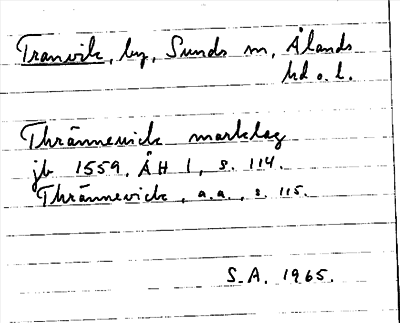 Tranvik, by, Sunds sn, Ålands
hd o. l.
Thrännewick marklag
jb 1559, ÅH 1, s. 114.
Thrännevick, a.a., s. 115.
S.A. 1965.